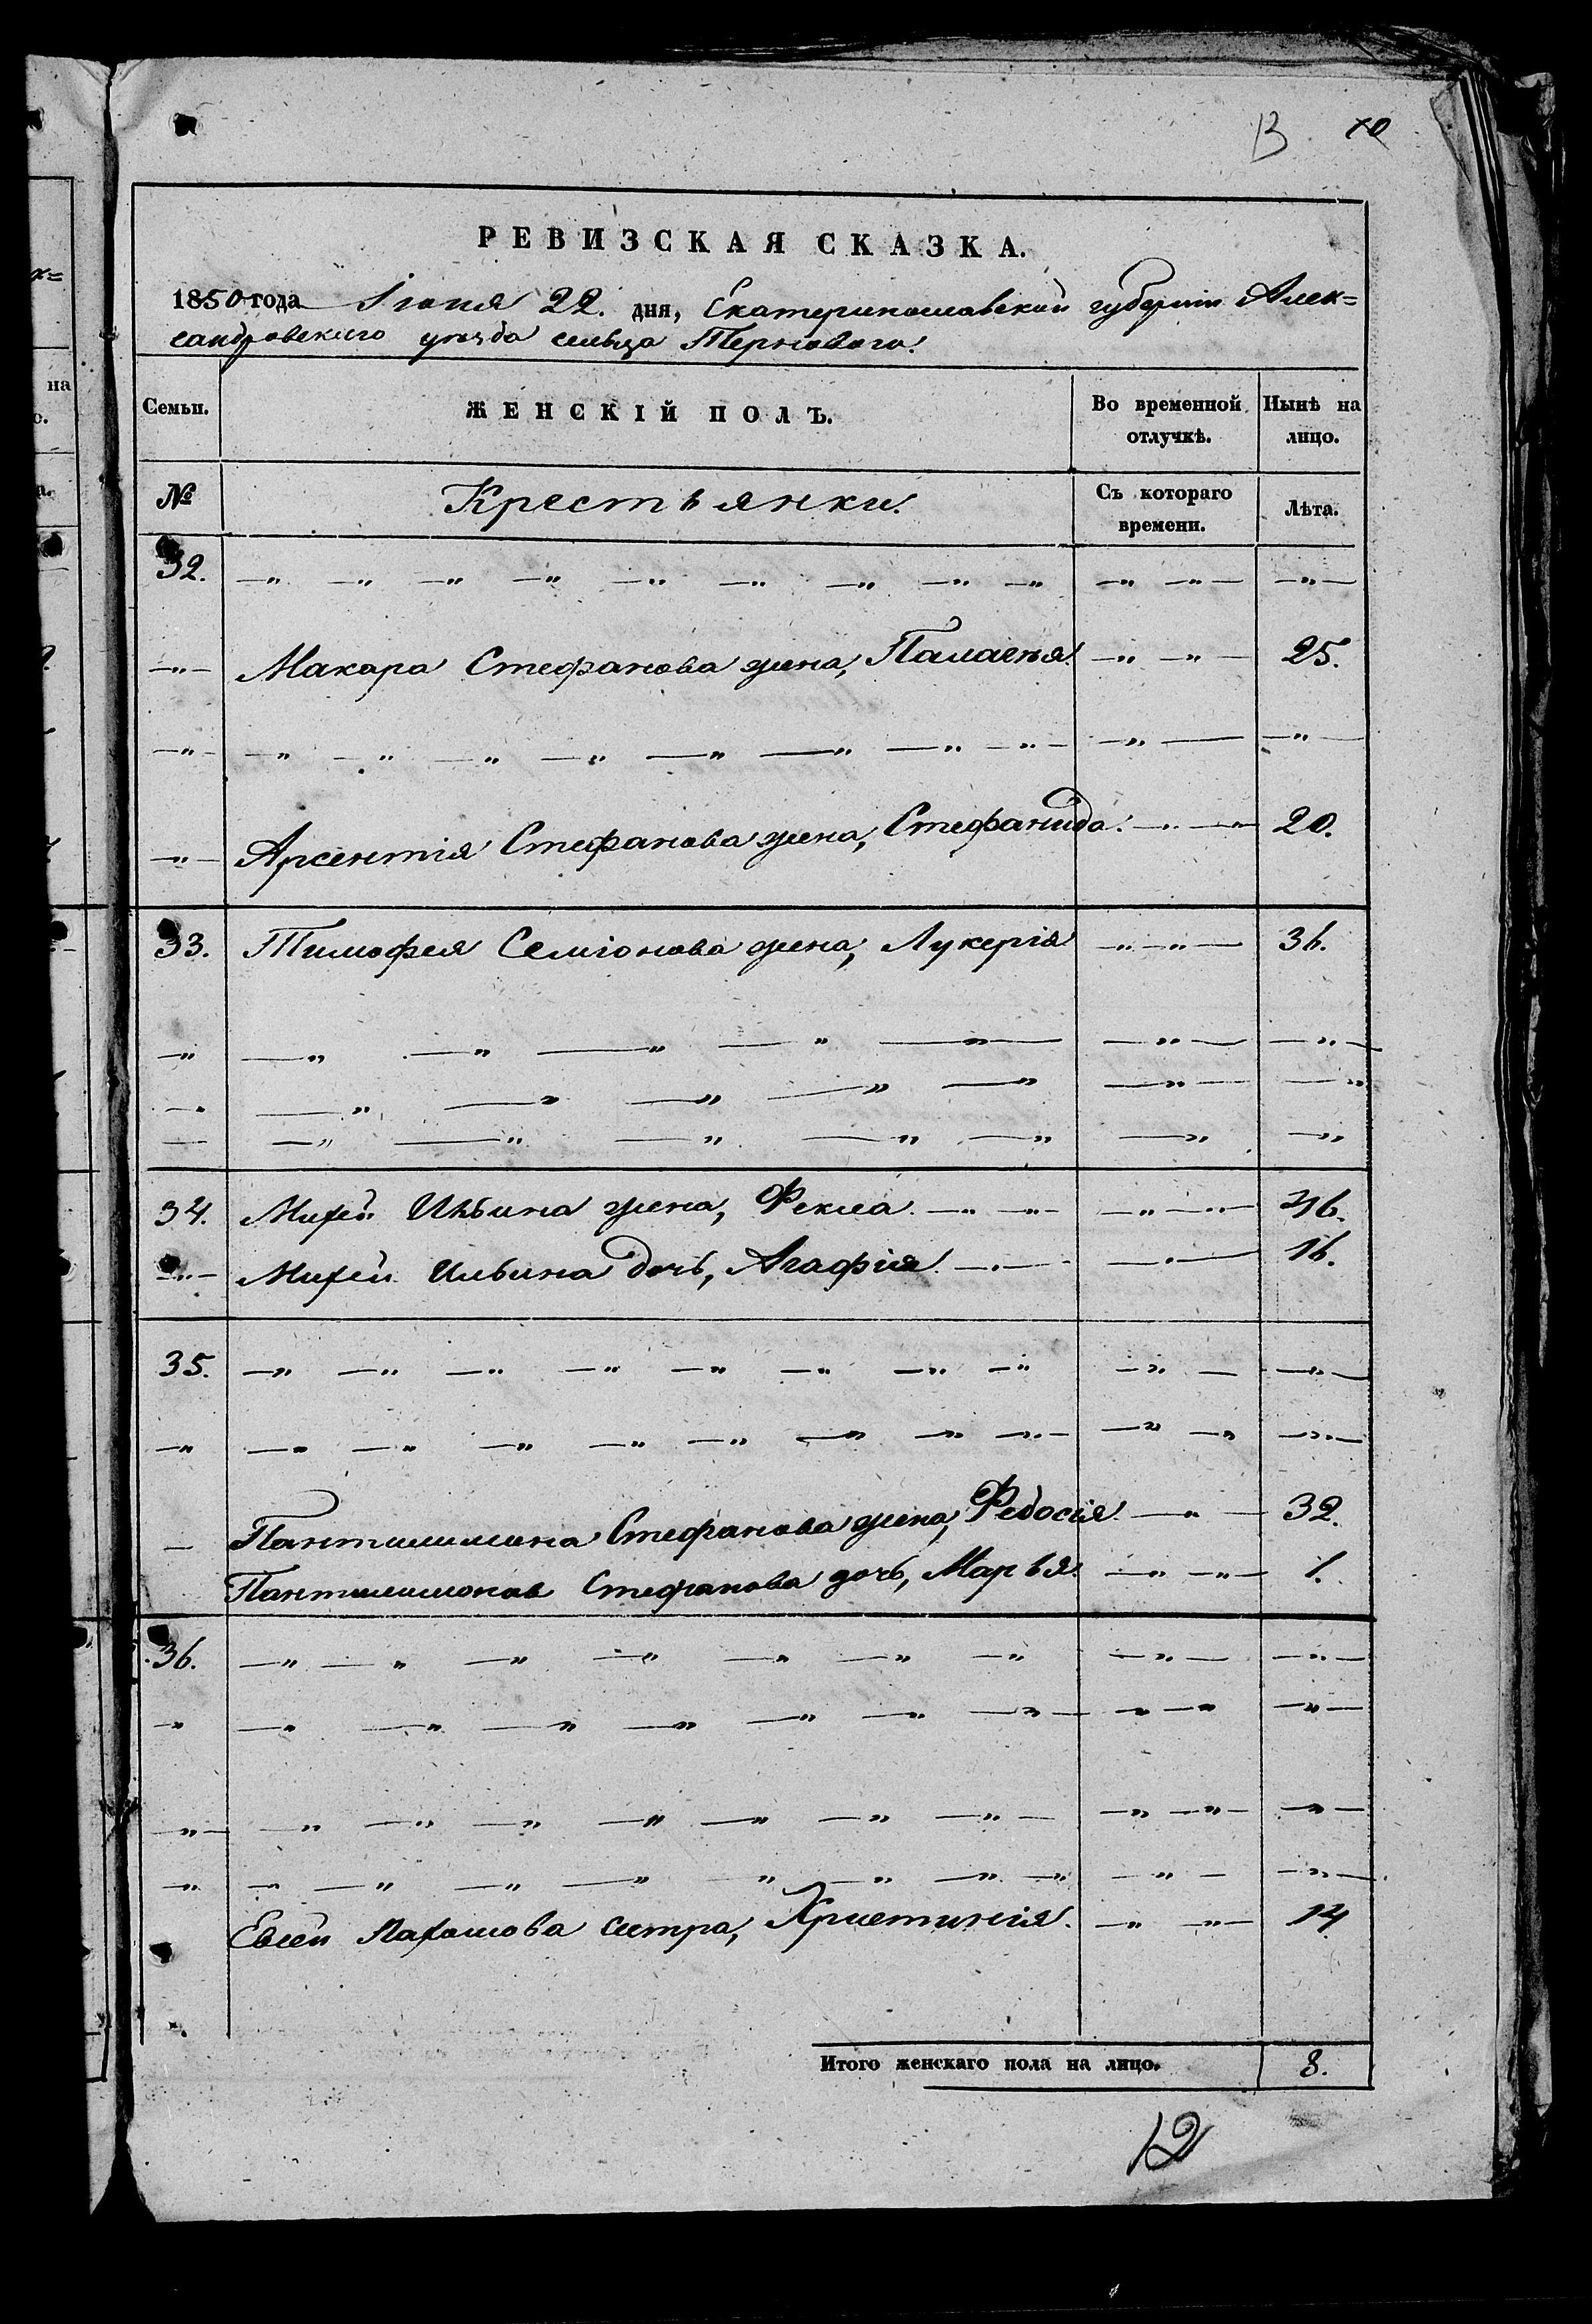 13 10
РЕВИЗСКАЯ СКАЗКА.
1850 года Іюня 22. дня, Екатеринославской губерніи Алек=
сандровскаго уѣзда сельца Терноваго.
Семьи. ЖЕНСКІЙ ПОЛЪ. Во временной отлучкѣ. Нынѣ на лицо.
№ Крестьянки. Съ котораго времени. Лѣта.
32. —„ —„ —„ —„ —„ —„ —„ —„ —„ —„ —„— —„—
—„— Макара Стефанова жена, Палагѣя. —„ —„— 25.
—„— —„ —„ —„ —„ —„ —„ —„ —„— —„ — —„—
—„— Арсентія Стефанова жена, Стефанида. —„ —„— 20.
33. Тимофея Семіонова жена, Лукерія —„—„— 36.
—„ —„ —„ —„ —„ —„— —„— —„—
—„ —„ —„ —„ —„ —„ —„— —„
— —„ —„ —„ —„ —„ —„ —„
34. Михей Ильина жена, Фекла. —„ —„— —„ —„— 46.
—„— Михей Ильина дочь, Агафія. —„— —„— 16.
35. —„ —„ —„ —„ —„ —„ —„ —„ —„ — —„—
—„ —„ —„ —„ —„ —„ —„ —„ —„— —„ —„ —„—
— Пантилимина Стефанова жена, Федосія —„— 32.
Пантилимонов Стефанова дочь, Марья. —„ —„— 1.
36. —„ —„ —„ —„ —„ —„ —„ —„— —„—
—„ —„ —„ —„ —„ —„ —„ —„— —„—„ —„—
—„— —„ —„ —„ —„ —„ —„ —„— —„ —„— —„—
—„ —„ —„ —„ —„ —„ —„ —„ —„ —„ — —„—
Евсей сестра, Христинія. —„ —„— 14.
Итого женскаго пола на лицо. 8.
12